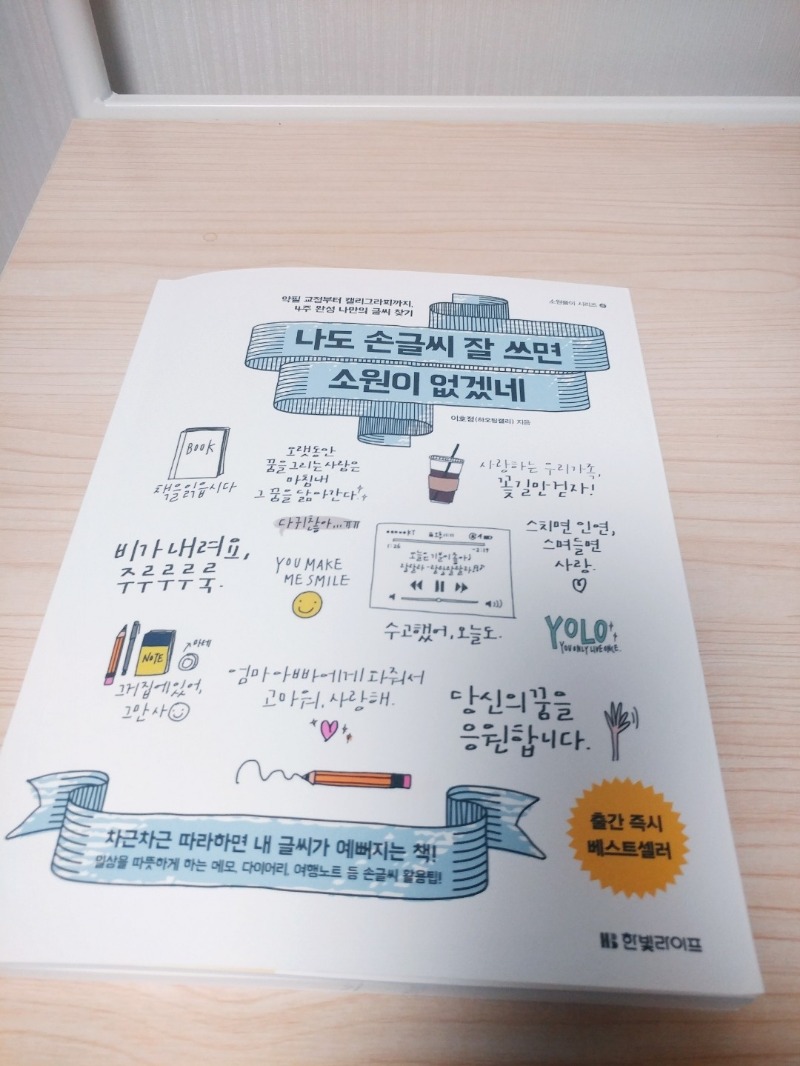 악필 교정부터 캘리그라피까지,
4주 완성 나만의 글씨 찾기
소원풀이 시리즈 2
나도 손글씨 잘 쓰면
소원이 없겠네
이호정(하오팅캘리) 지음
BOOK
책을읽읍시다
오랫동안
꿈을그리는사람은
마침내
그꿈을닮아간다
사랑하는우리가족,
꽃길만걷자!
다귀찮아...ㅠㅠ
비가내려요,
주루루루룩.
YOU MAKE
ME SMILE
1:26
-2:19
수고했어,오늘도.
스치면 인연,
스며들면
사랑.
YOLO
YOU ONLY LIVE ONCE.
NOTE
그거집에있어,
그만사
엄마아빠에게 와줘서
고마워,사랑해.
당신의꿈을
응원합니다.
차근차근 따라하면 내 글씨가 예뻐지는 책!
일상을 따뜻하게 하는 메모, 다이어리, 여행노트 등 손글씨 활용팁!
출간 즉시
베스트셀러
HB 한빛라이프